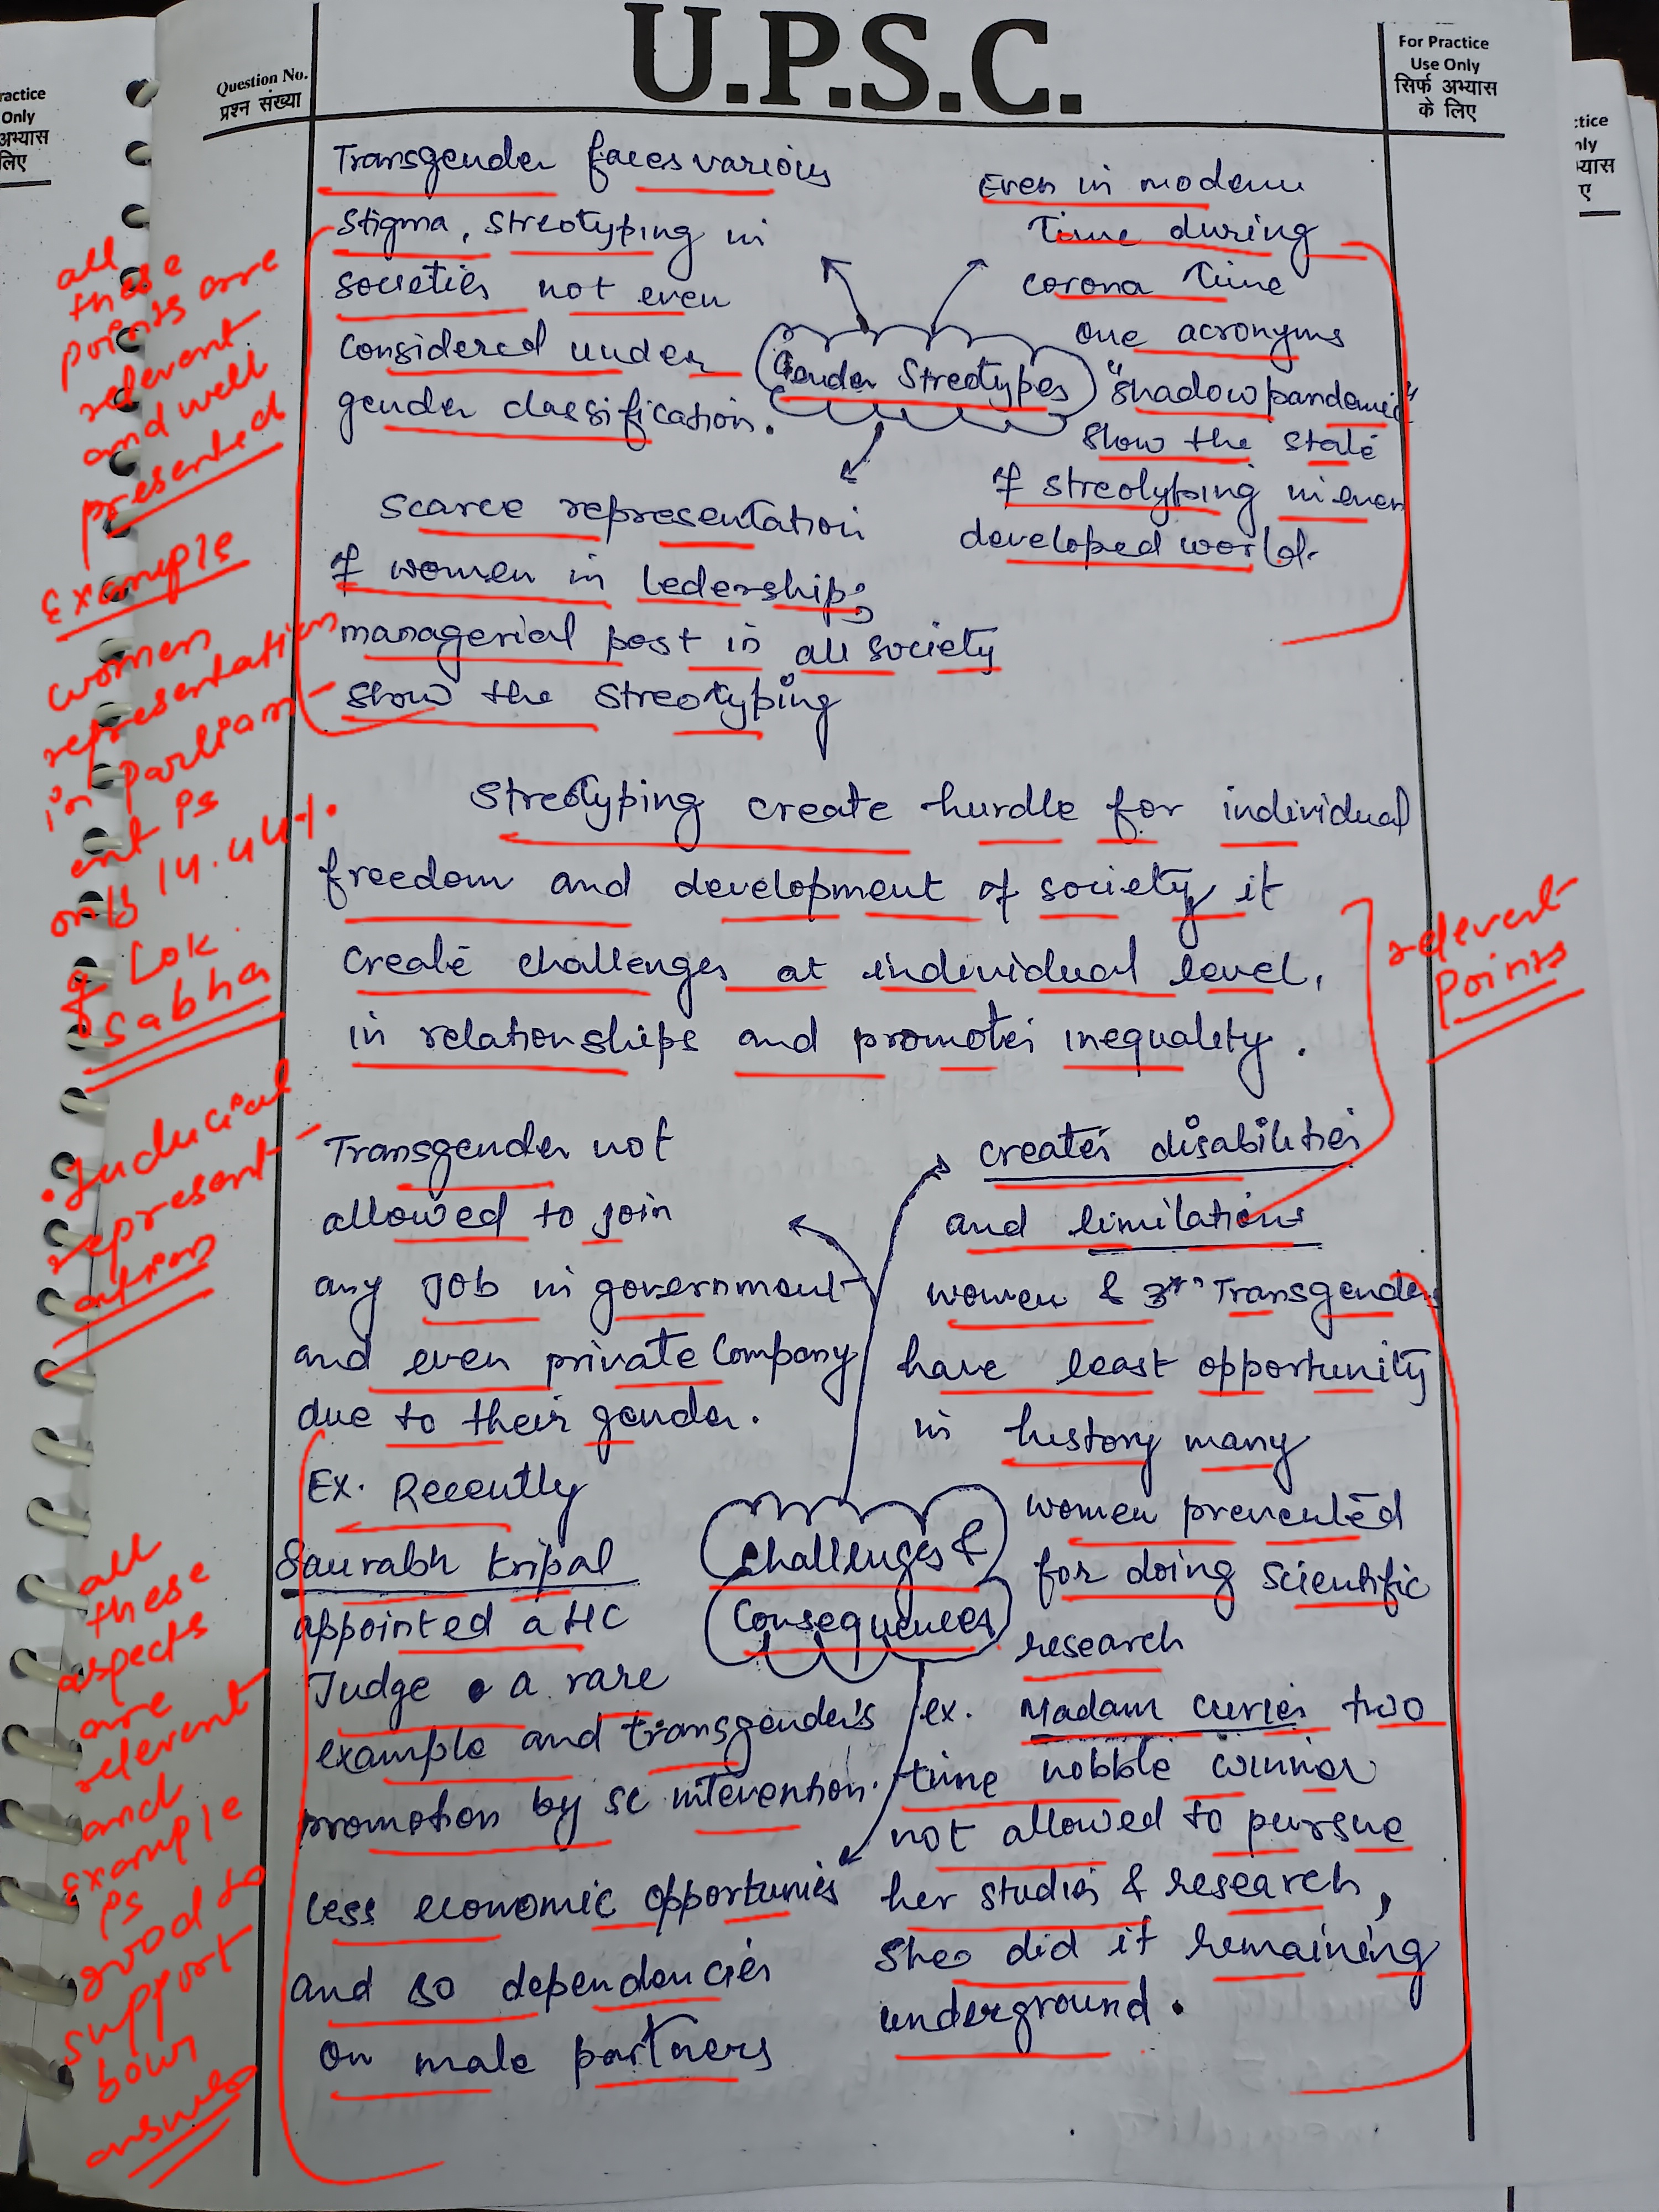 U.P.S.C.
Question No.
प्रश्न संख्या
For Practice
Use Only
सिर्फ अभ्यास
के लिए
ractice
Only
अभ्यास
लिए
ctice
nly
यास
ए
Transgender faces various
Stigma, Streotyping in
societies not even
considered under
gender classification.
Even in modern
Time during
corona Time
one acronyms
"shadow pandemic"
show the state
of streotyping in even
developed world.
Gender Streotypes
Scarce representation
of women in ledership,
managerial post in all society
show the streotyping
Streotyping create hurdle for individual
freedom and development of society it
create challenges at individual level,
in relationships and promotes inequality.
Transgender not
allowed to join
any Job in government
and even private Company
due to their gender.
Ex. Recently
Saurabh Kripal
appointed a HC
Judge a rare
example and transgender's
promotion by SC intevention.
creates disabilities
and limitations
women & 3rd Transgender
have least opportunity
in history many
women prevented
for doing scientific
research
ex. Madam curies two
time nobble winner
not allowed to pursue
her studies & research,
She did it remaining
underground.
Challenges &
Consequences
less economic opportunies
and so dependencies
on male partners
all
these
points are
relevant
and well
presented
Example
women
representation
in Parliam-
ent is
only 14.44%.
of Lok
Sabha
• Juducial
represent-
ation
relevent
Points
all
these
aspects
are
relevent
and
Example
is
good to
support
your
answer